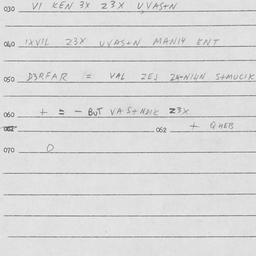 030 VI KEN 3X Z3X UVAS+N
040 IXVIL Z3X UVAS+N MANIY ENT
050 D3RFAR = VAL ZEJ S+MUCIK
060 + = - BUT VAS+NDIK Z3X
062 052 + QHEB
070 O